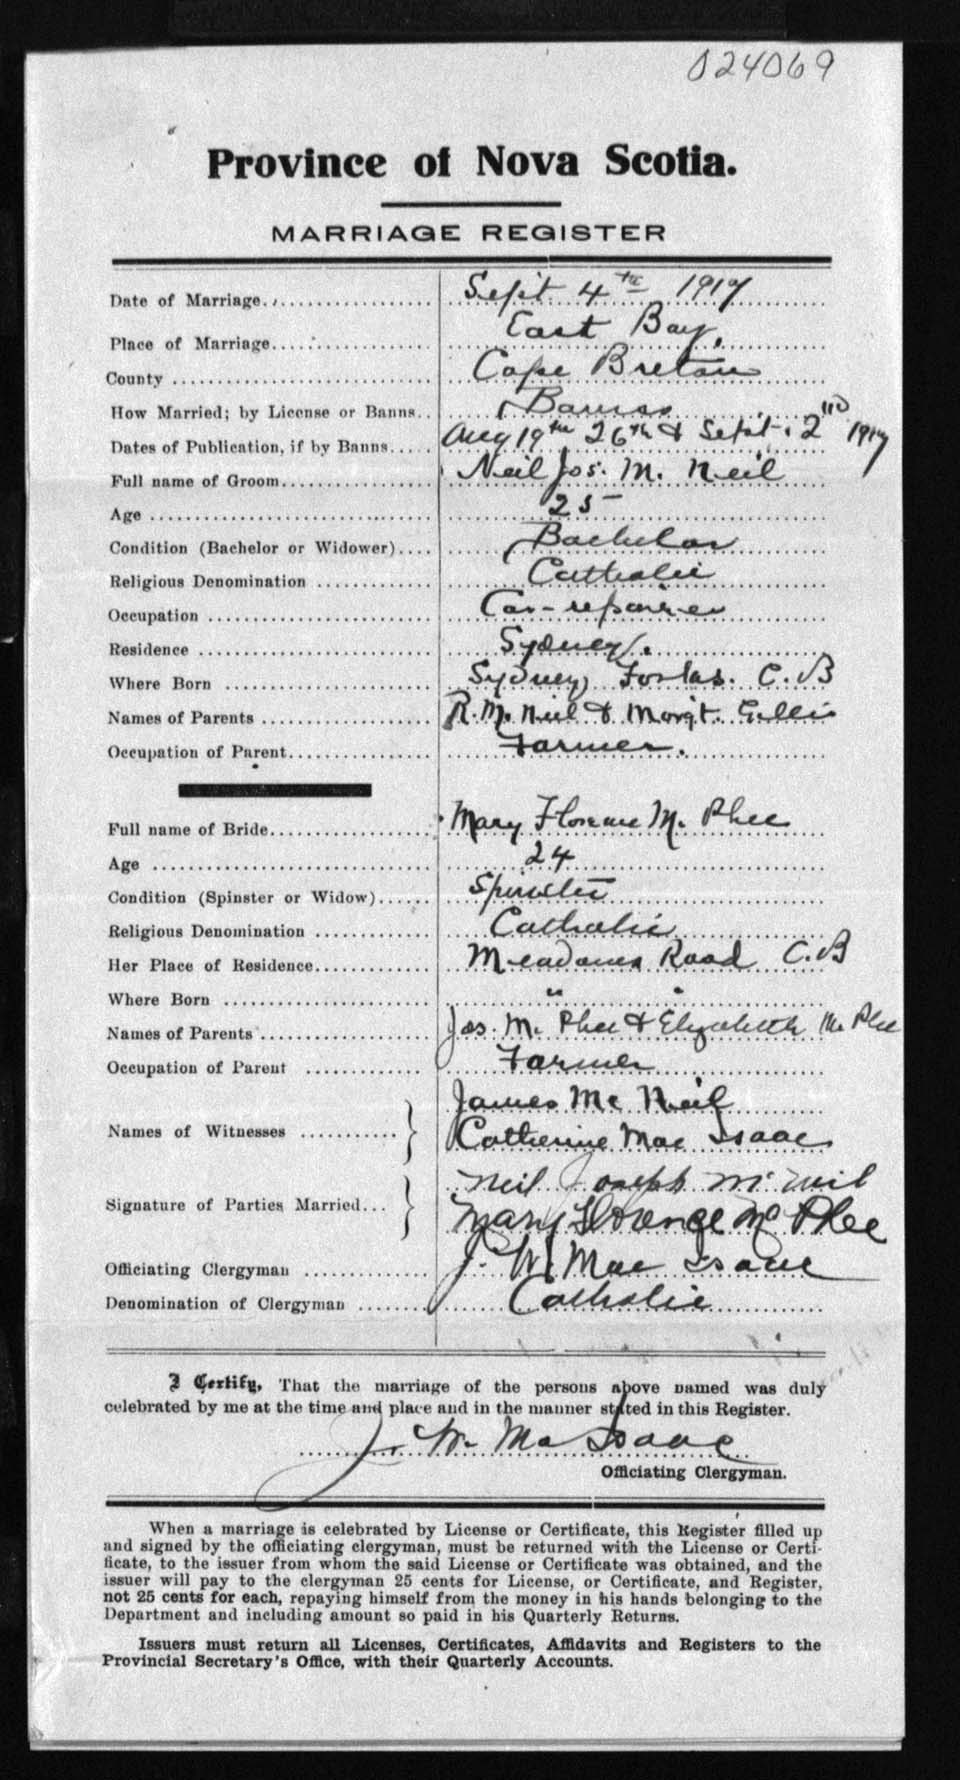 024069
Province of Nova Scotia.
MARRIAGE REGISTER
Date of Marriage Sept 4th 1917
Place of Marriage East Bay,
County Cape Breton
How Married; by License or Banns Banns
Dates of Publication, if by Banns Aug 19th 26th & Sept. 2nd 1917
Full name of Groom Neil Jos. Mc Neil
Age 25
Condition (Bachelor or Widower) Bachelor
Religious Denomination Catholic
Occupation Car-repairer
Residence Sydney.
Where Born Sydney, Forks. C.B
Names of Parents R. Mc Neil & Margt. Gillis
Occupation of Parent Farmer.
Full name of Bride Mary Florence Mc Phee
Age 24
Condition (Spinster or Widow) Spinster
Religious Denomination Catholic
Her Place of Residence Meadows Road C.B
Where Born " "
Names of Parents Jos. Mc Phee & Elizabeth Mc Phee
Occupation of Parent Farmer
Names of Witnesses James Mc Neil
Catherine Mac Isaac
Signature of Parties Married Neil Joseph Mc Neil
Mary Florence Mc Phee
Officiating Clergyman J. W. Mac Isaac
Denomination of Clergyman Catholic
I Certify, That the marriage of the persons above named was duly
celebrated by me at the time and place and in the manner stated in this Register.
J. W. Mac Isaac
Officiating Clergyman.
When a marriage is celebrated by License or Certificate, this Register filled up
and signed by the officiating clergyman, must be returned with the License or Certi-
ficate, to the issuer from whom the said License or Certificate was obtained, and the
issuer will pay to the clergyman 25 cents for License, or Certificate, and Register,
not 25 cents for each, repaying himself from the money in his hands belonging to the
Department and including amount so paid in his Quarterly Returns.
Issuers must return all Licenses, Certificates, Affidavits and Registers to the
Provincial Secretary's Office, with their Quarterly Accounts.